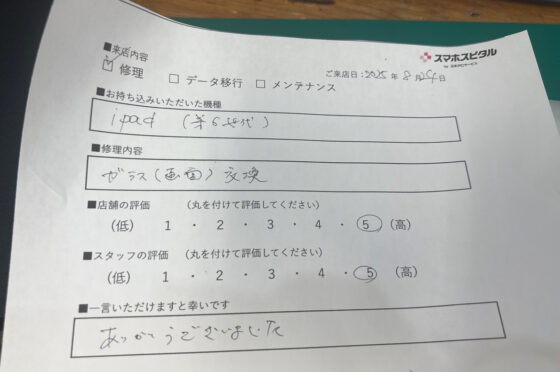 スマホスピタル
■来店内容
ご来店日:2025年8月24日
☑ 修理 □ データ移行 □ メンテナンス
■お持ち込みいただいた機種
ipad (第6世代)
■修理内容
ガラス(画面)交換
■店舗の評価 (丸を付けて評価してください)
(低) 1 ・ 2 ・ 3 ・ 4 ・ 5 (高)
■スタッフの評価 (丸を付けて評価してください)
(低) 1 ・ 2 ・ 3 ・ 4 ・ 5 (高)
■一言いただけますと幸いです
ありがとうございました